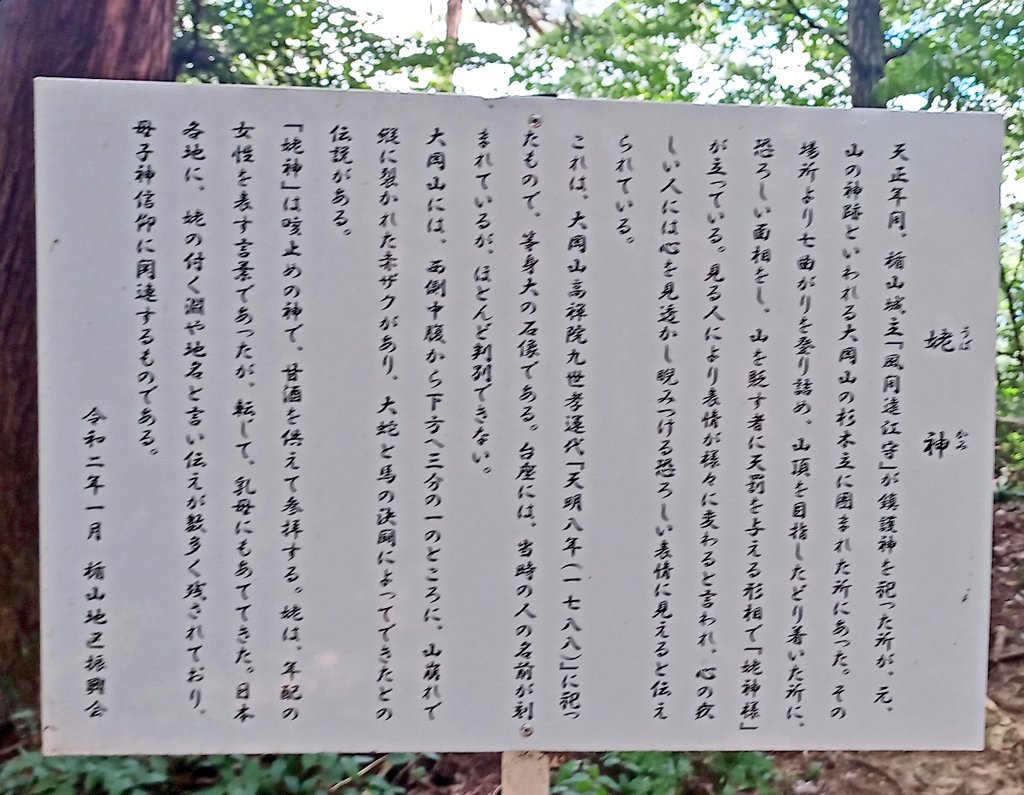 姥神
うばがみ
天正年間、楯山城主「風間遠江守」が鎮護神を祀った所が、元、
山の神跡といわれる大岡山の杉木立に囲まれた所にあった。その
場所より七曲がりを登り詰め、山頂を目指したどり着いた所に、
恐ろしい面相をし、山を貶す者に天罰を与える形相で「姥神様」
が立っている。見る人により表情が様々に変わると言われ、心の疚
しい人には心を見透かし睨みつける恐ろしい表情に見えると伝え
られている。
これは、大岡山高禅院九世孝運代「天明八年(一七八八)」に祀っ
たもので、等身大の石像である。台座には、当時の人の名前が刻
まれているが、ほとんど判別できない。
大岡山には、西側中腹から下方へ三分の一のところに、山崩れで
縦に裂かれた赤ザクがあり、大蛇と馬の決闘によってできたとの
伝説がある。
「姥神」は咳止めの神で、甘酒を供えて参拝する。姥は、年配の
女性を表す言葉であったが、転じて、乳母にもあててきた。日本
各地に、姥の付く淵や地名と言い伝えが数多く残されており、
母子神信仰に関連するものである。
令和二年一月 楯山地区振興会